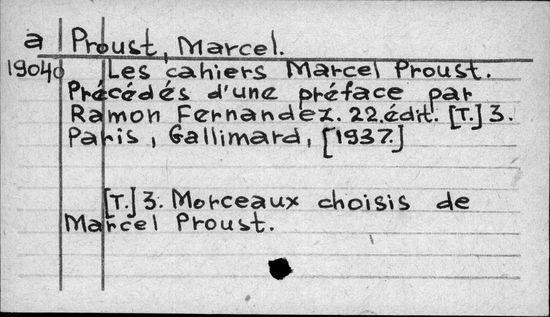 a Proust, Marcel.
19040 Les cahiers Marcel Proust.
Précédés d'une préface par
Ramon Fernandez. 22.édit. [T.] 3.
Paris, Gallimard, [1937.]
[T.] 3. Morceaux choisis de
Marcel Proust.